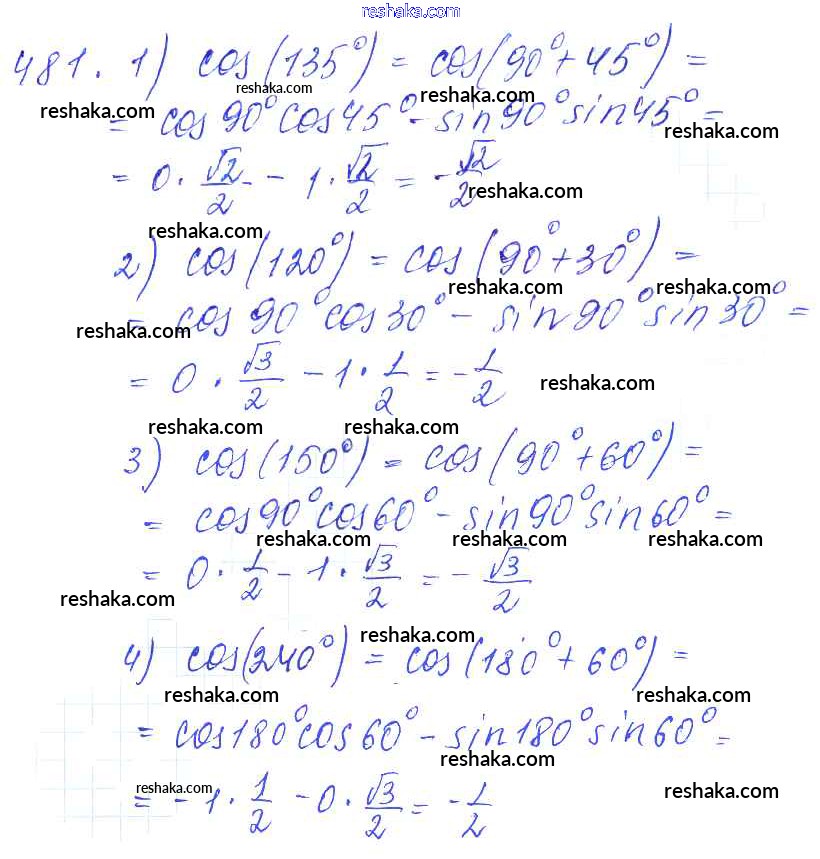 reshaka.com
481. 1) cos(135°) = cos(90° + 45°) =
reshaka.com reshaka.com reshaka.com
= cos 90° cos 45° - sin 90° sin 45° =
reshaka.com
= 0 · √2/2 - 1 · √2/2 = - √2/2
reshaka.com
reshaka.com
2) cos(120°) = cos(90° + 30°) =
reshaka.com reshaka.com
= cos 90° cos 30° - sin 90° sin 30° =
reshaka.com
= 0 · √3/2 - 1 · 1/2 = - 1/2
reshaka.com
reshaka.com reshaka.com
3) cos(150°) = cos(90° + 60°) =
= cos 90° cos 60° - sin 90° sin 60° =
reshaka.com reshaka.com reshaka.com
= 0 · 1/2 - 1 · √3/2 = - √3/2
reshaka.com
reshaka.com
4) cos(240°) = cos(180° + 60°) =
reshaka.com reshaka.com
= cos 180° cos 60° - sin 180° sin 60° =
reshaka.com
reshaka.com reshaka.com
= - 1 · 1/2 - 0 · √3/2 = - 1/2